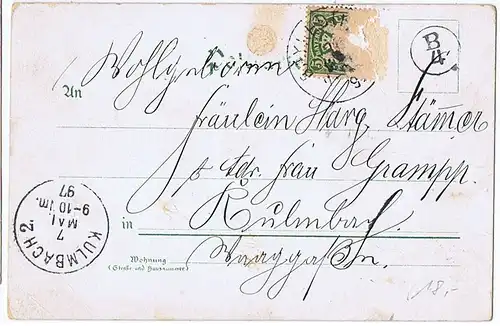 Wohlgeboren
B
4
An
Fräulein Marg. Stämer
Adr. Frau Grampp.
in Kulmbach.
Wohnung
(Straße und Hausnummer)
KULMBACH 2.
7
MAI.
9-10 Vm.
97
18,-